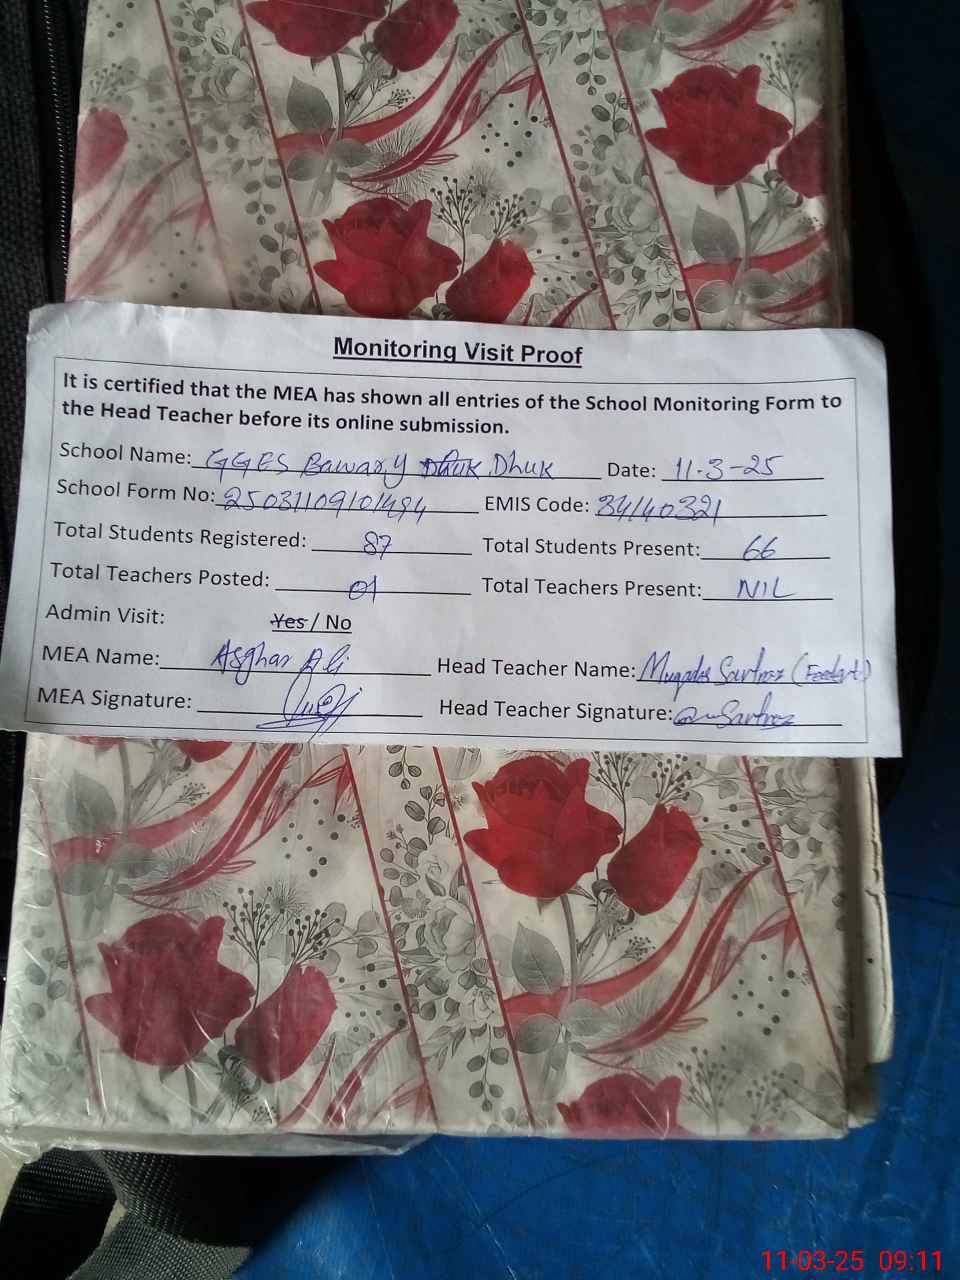 Monitoring Visit Proof
It is certified that the MEA has shown all entries of the School Monitoring Form to
the Head Teacher before its online submission.
School Name: GGES Bawary Dhuk Date: 11-3-25
School Form No: 25031109101494 EMIS Code: 34140321
Total Students Registered: 87 Total Students Present: 66
Total Teachers Posted: 01 Total Teachers Present: NIL
Admin Visit: Yes / No
MEA Name: Asghar Ali Head Teacher Name: Muqadas Sarfraz
MEA Signature: Head Teacher Signature: Sarfraz
11-03-25 09:11